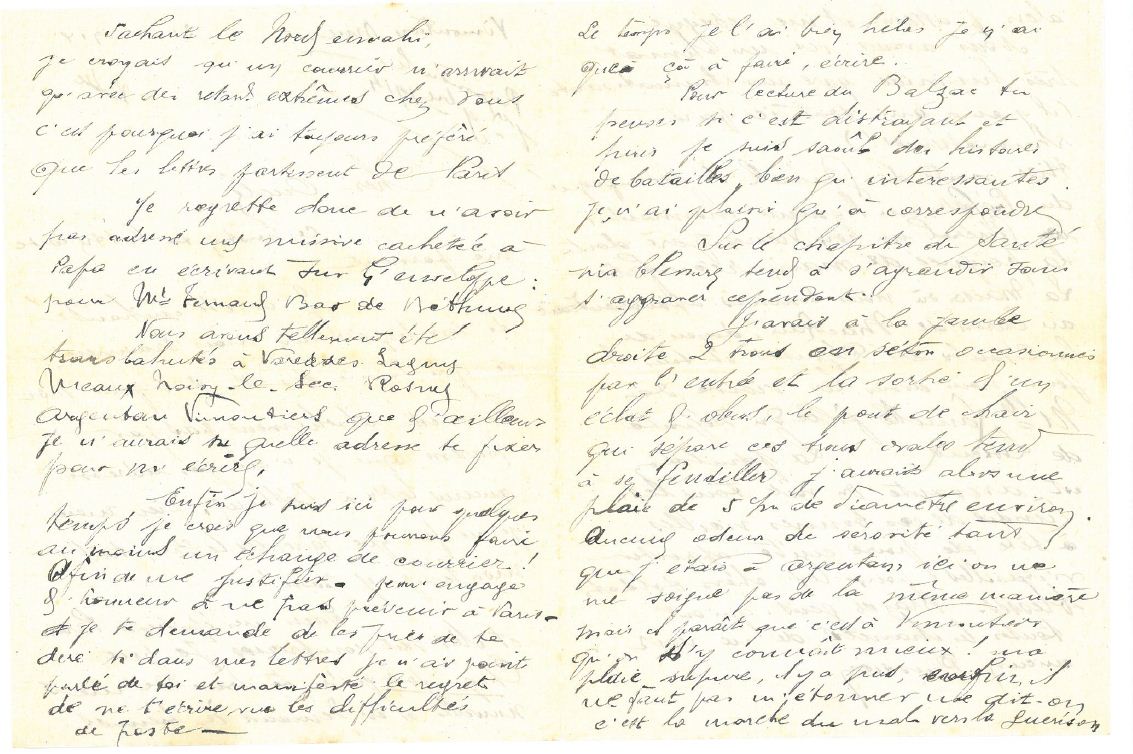 Sachant le Nord envahi,
je croyais qu'un courrier n'arrivait
qu'avec des retards extrêmes chez vous
c'est pourquoi j'ai toujours préféré
que les lettres partissent de Paris
Je regrette donc de n'avoir
pas adressé une missive cachetée à
Papa en écrivant sur l'enveloppe :
pour Mr Fernand Bar de Béthune
Nous avons tellement été
transbahutés à Varedes Lagny
Meaux Noisy-le-Sec Rosny
Argentan Vimoutiers que d'ailleurs
je n'aurais su quelle adresse te fixer
pour m'écrire.
Enfin je suis ici pour quelques
temps je crois que nous pouvons faire
au moins un échange de courrier !
Afin de me justifier - je m'engage
d'honneur à ne pas prévenir à Paris -
et je te demande de les prier de te
dire si dans mes lettres je n'ai point
parlé de toi et manifesté le regret
de ne t'écrire, vu les difficultés
de poste —
Le temps je l'ai bien hélas je n'ai
que ça à faire, écrire..
Pour lecture du Balzac tu
penses si c'est distrayant et
puis je suis saoûl des histoires
de batailles bien qu'intéressantes.
Je n'ai plaisir qu'à correspondre
Sur le chapitre du Santé
ma blessure tend à s'agrandir sans
s'aggraver cependant.
J'avais à la jambe
droite 2 trous en séton occasionnés
par l'entrée et la sortie d'un
éclat d'obus, le pont de chair
qui sépare ces trous ovales tend
à se fendiller j'aurais alors une
plaie de 5 cm de diamètre environ.
Aucune odeur de sérosité tant
que j'étais à Argentan ici on ne
me soigne pas de la même manière
mais il paraît que c'est à Vimoutiers
qu'on s'y connaît mieux ! ma
plaie suppure, il y a pus, enfin, il
ne faut pas m'étonner me dit-on
c'est la marche du mal vers la guérison